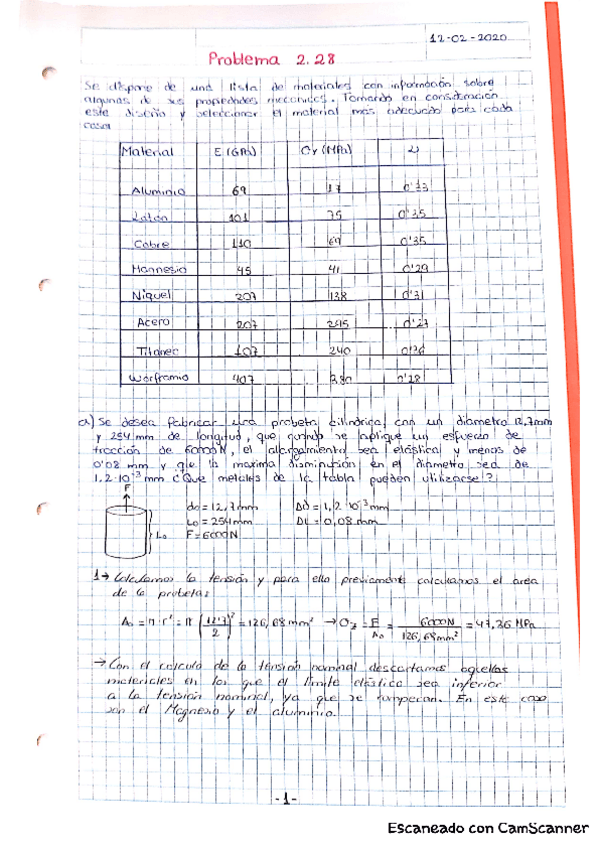 12-02-2020
Problema 2.28
Se dispone de una lista de materiales con información sobre
algunas de sus propiedades mecanicas. Tomando en consideración
este diseño y seleccionar el material más adecuado para cada
caso:
Material E (GPa) σy (MPa) ν
Aluminio 69 17 0'33
Latón 101 75 0'35
Cobre 110 69 0'35
Magnesio 45 41 0'29
Niquel 207 138 0'31
Acero 207 0'27
Titanio 107 240
Worframio 407 0'28
a) Se desea fabricar una probeta cilindrica, con un diametro 12,7mm
y 254 mm de longitud, que cuando se aplique un esfuerzo de
tracción de 6000N, el alargamiento sea elástico y menos de
0'08 mm y que la maxima disminución en el diametro sea de
1,2·10⁻³ mm ¿Que metales de la tabla pueden utilizarse?
F
Lo
do = 12,7mm ΔD = 1,2·10⁻³ mm
Lo = 254mm ΔL = 0,08 mm
F = 6000N
1→ Calculamos la tensión y para ello previamente calculamos el area
de la probeta:
Ao = π·r² = π (12'7/2)² = 126,68 mm² → σz = F/Ao = 6000N/126,68mm² = 47,36 MPa
→ Con el calculo de la tensión nominal descartamos aquellos
materiales en los que el límite elástico sea inferior
a la tensión nominal, ya que se romperian. En este caso
son el Magnesio y el aluminio.
-1-
Escaneado con CamScanner